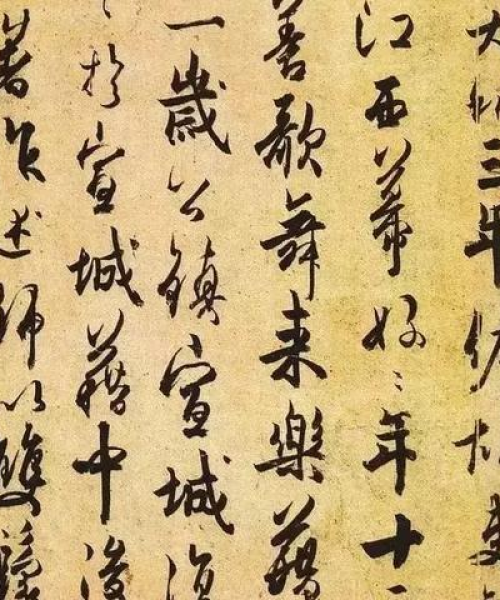 大和三年佐故吏
江西幕好〻年十
善歌舞來樂籍
一歲公鎮宣城復
〻於宣城籍中後
著作述師以雙鬟